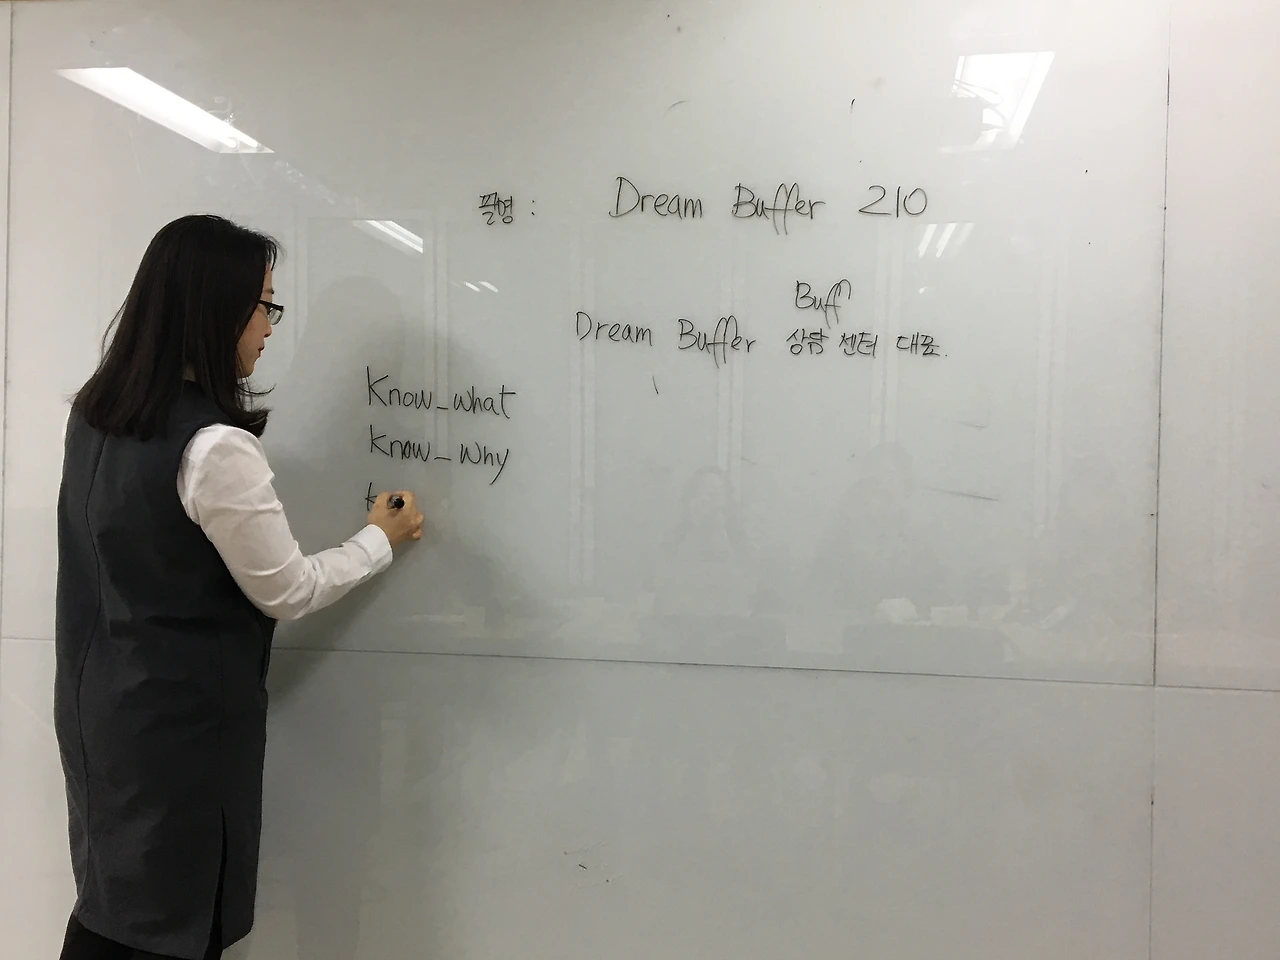 필명 : Dream Buffer 210
Buff
Dream Buffer 상담 센터 대표.
Know_what
know_why
k